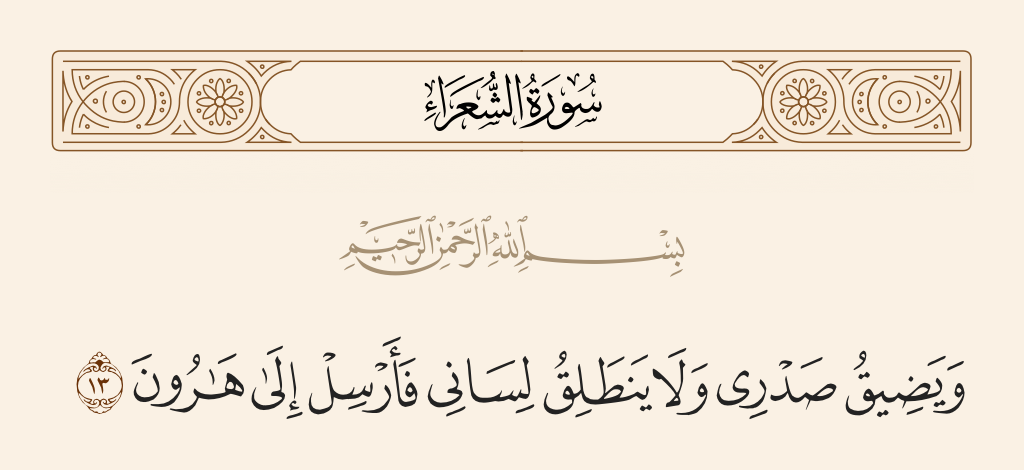 سُورَةُ الشُّعَرَاءِ
بِسْمِ ٱللَّهِ ٱلرَّحْمَٰنِ ٱلرَّحِيمِ
وَيَضِيقُ صَدْرِى وَلَا يَنطَلِقُ لِسَانِى فَأَرْسِلْ إِلَىٰ هَـٰرُونَ ١٣